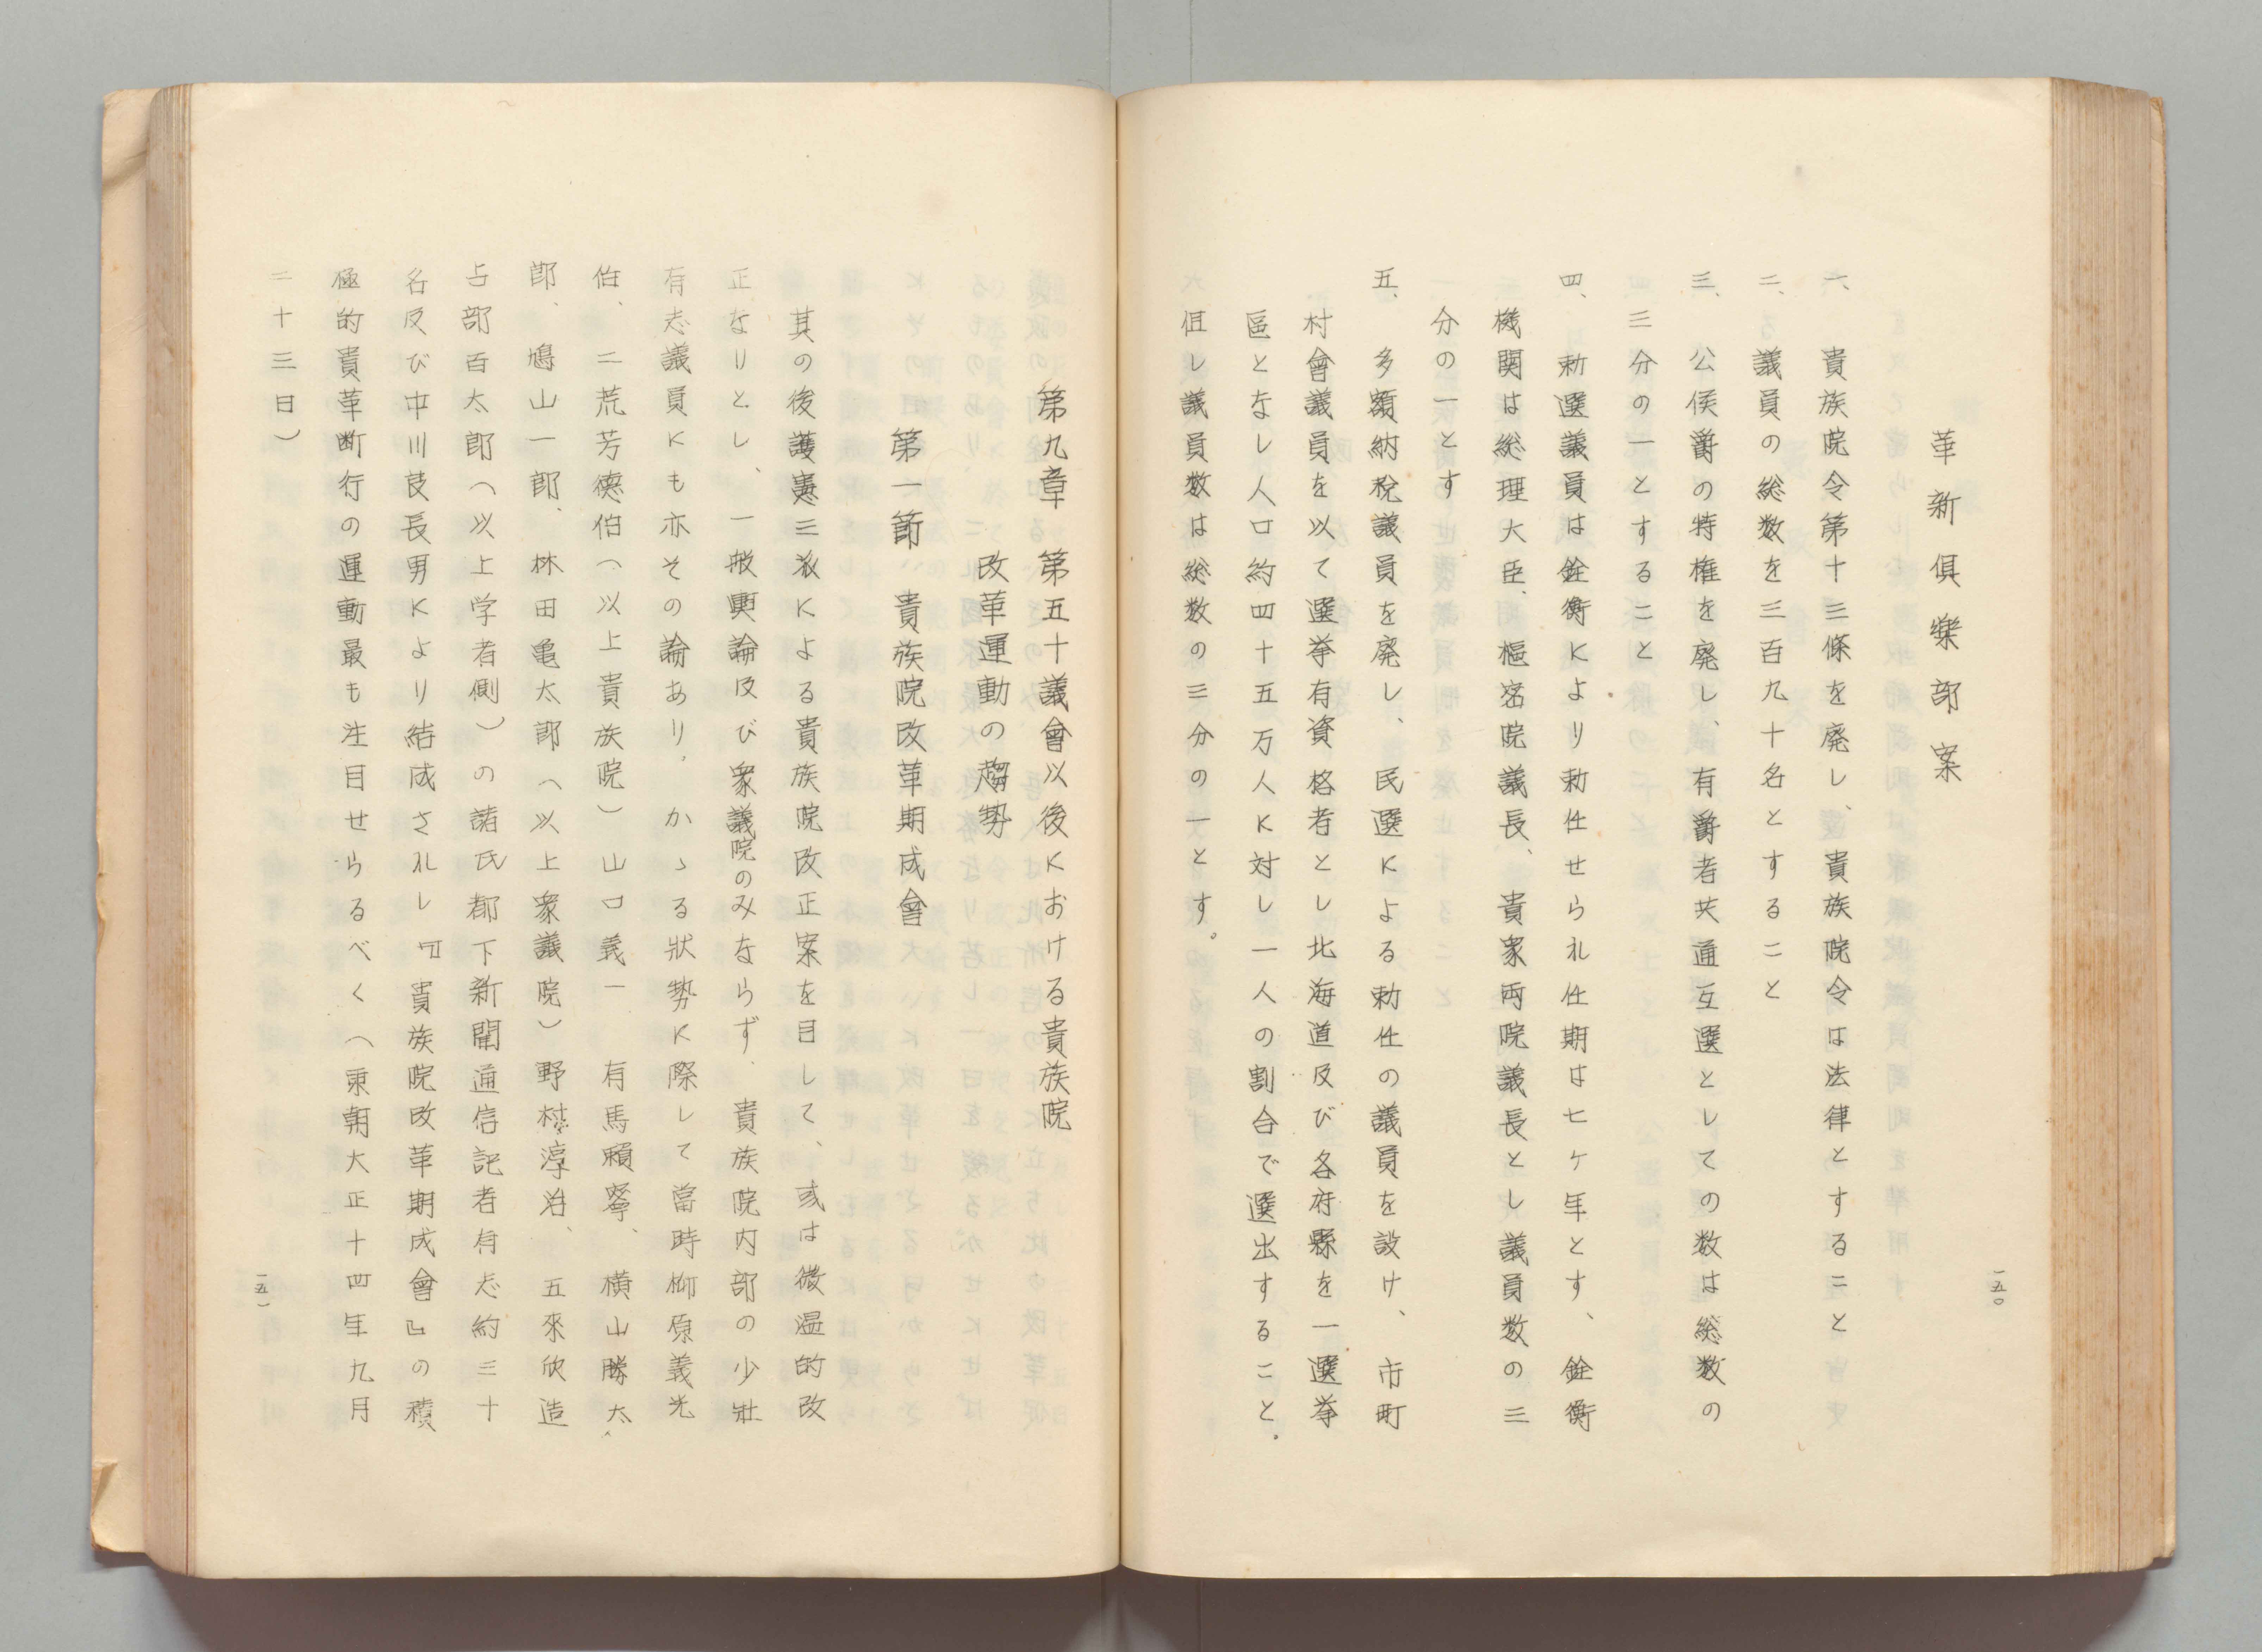 革新倶樂部案
一、貴族院令第十三條を廃し、貴族院令は法律とすること
二、議員の総数を三百九十名とすること
三、公侯爵の特権を廃し、有爵者共通互選としての数は総数の
三分の一とすること
四、勅選議員は銓衡により勅任せられ任期は七ヶ年とす、銓衡
機関は総理大臣、樞密院議長、貴衆両院議長とし議員数の三
分の一とす
五、多額納税議員を廃し、民選による勅任の議員を設け、市町
村會議員を以て選挙有資格者とし北海道及び各府縣を一選挙
區となし人口約四十五万人に対し一人の割合で選出すること。
但し議員数は総数の三分の一とす。
一五〇
第九章　第五十議會以後における貴族院
改革運動の趨勢
第一節　貴族院改革期成會
其の後護憲三派による貴族院改正案を目して、或は微温的改
正なりとし、一般輿論及び衆議院のみならず、貴族院内部の少壯
有志議員にも亦その論あり、かゝる狀勢に際して當時柳原義光
伯、二荒芳德伯（以上貴族院）山口義一　有馬頼寧、横山勝太
郎、鳩山一郎、林田亀太郎（以上衆議院）野村淳治、五來欣造
占部百太郎（以上学者側）の諸氏都下新聞通信記者有志約三十
名及び中川良長男により結成されし『貴族院改革期成會』の積
極的貴革断行の運動最も注目せらるべく（東朝大正十四年九月
二十三日）
一五一